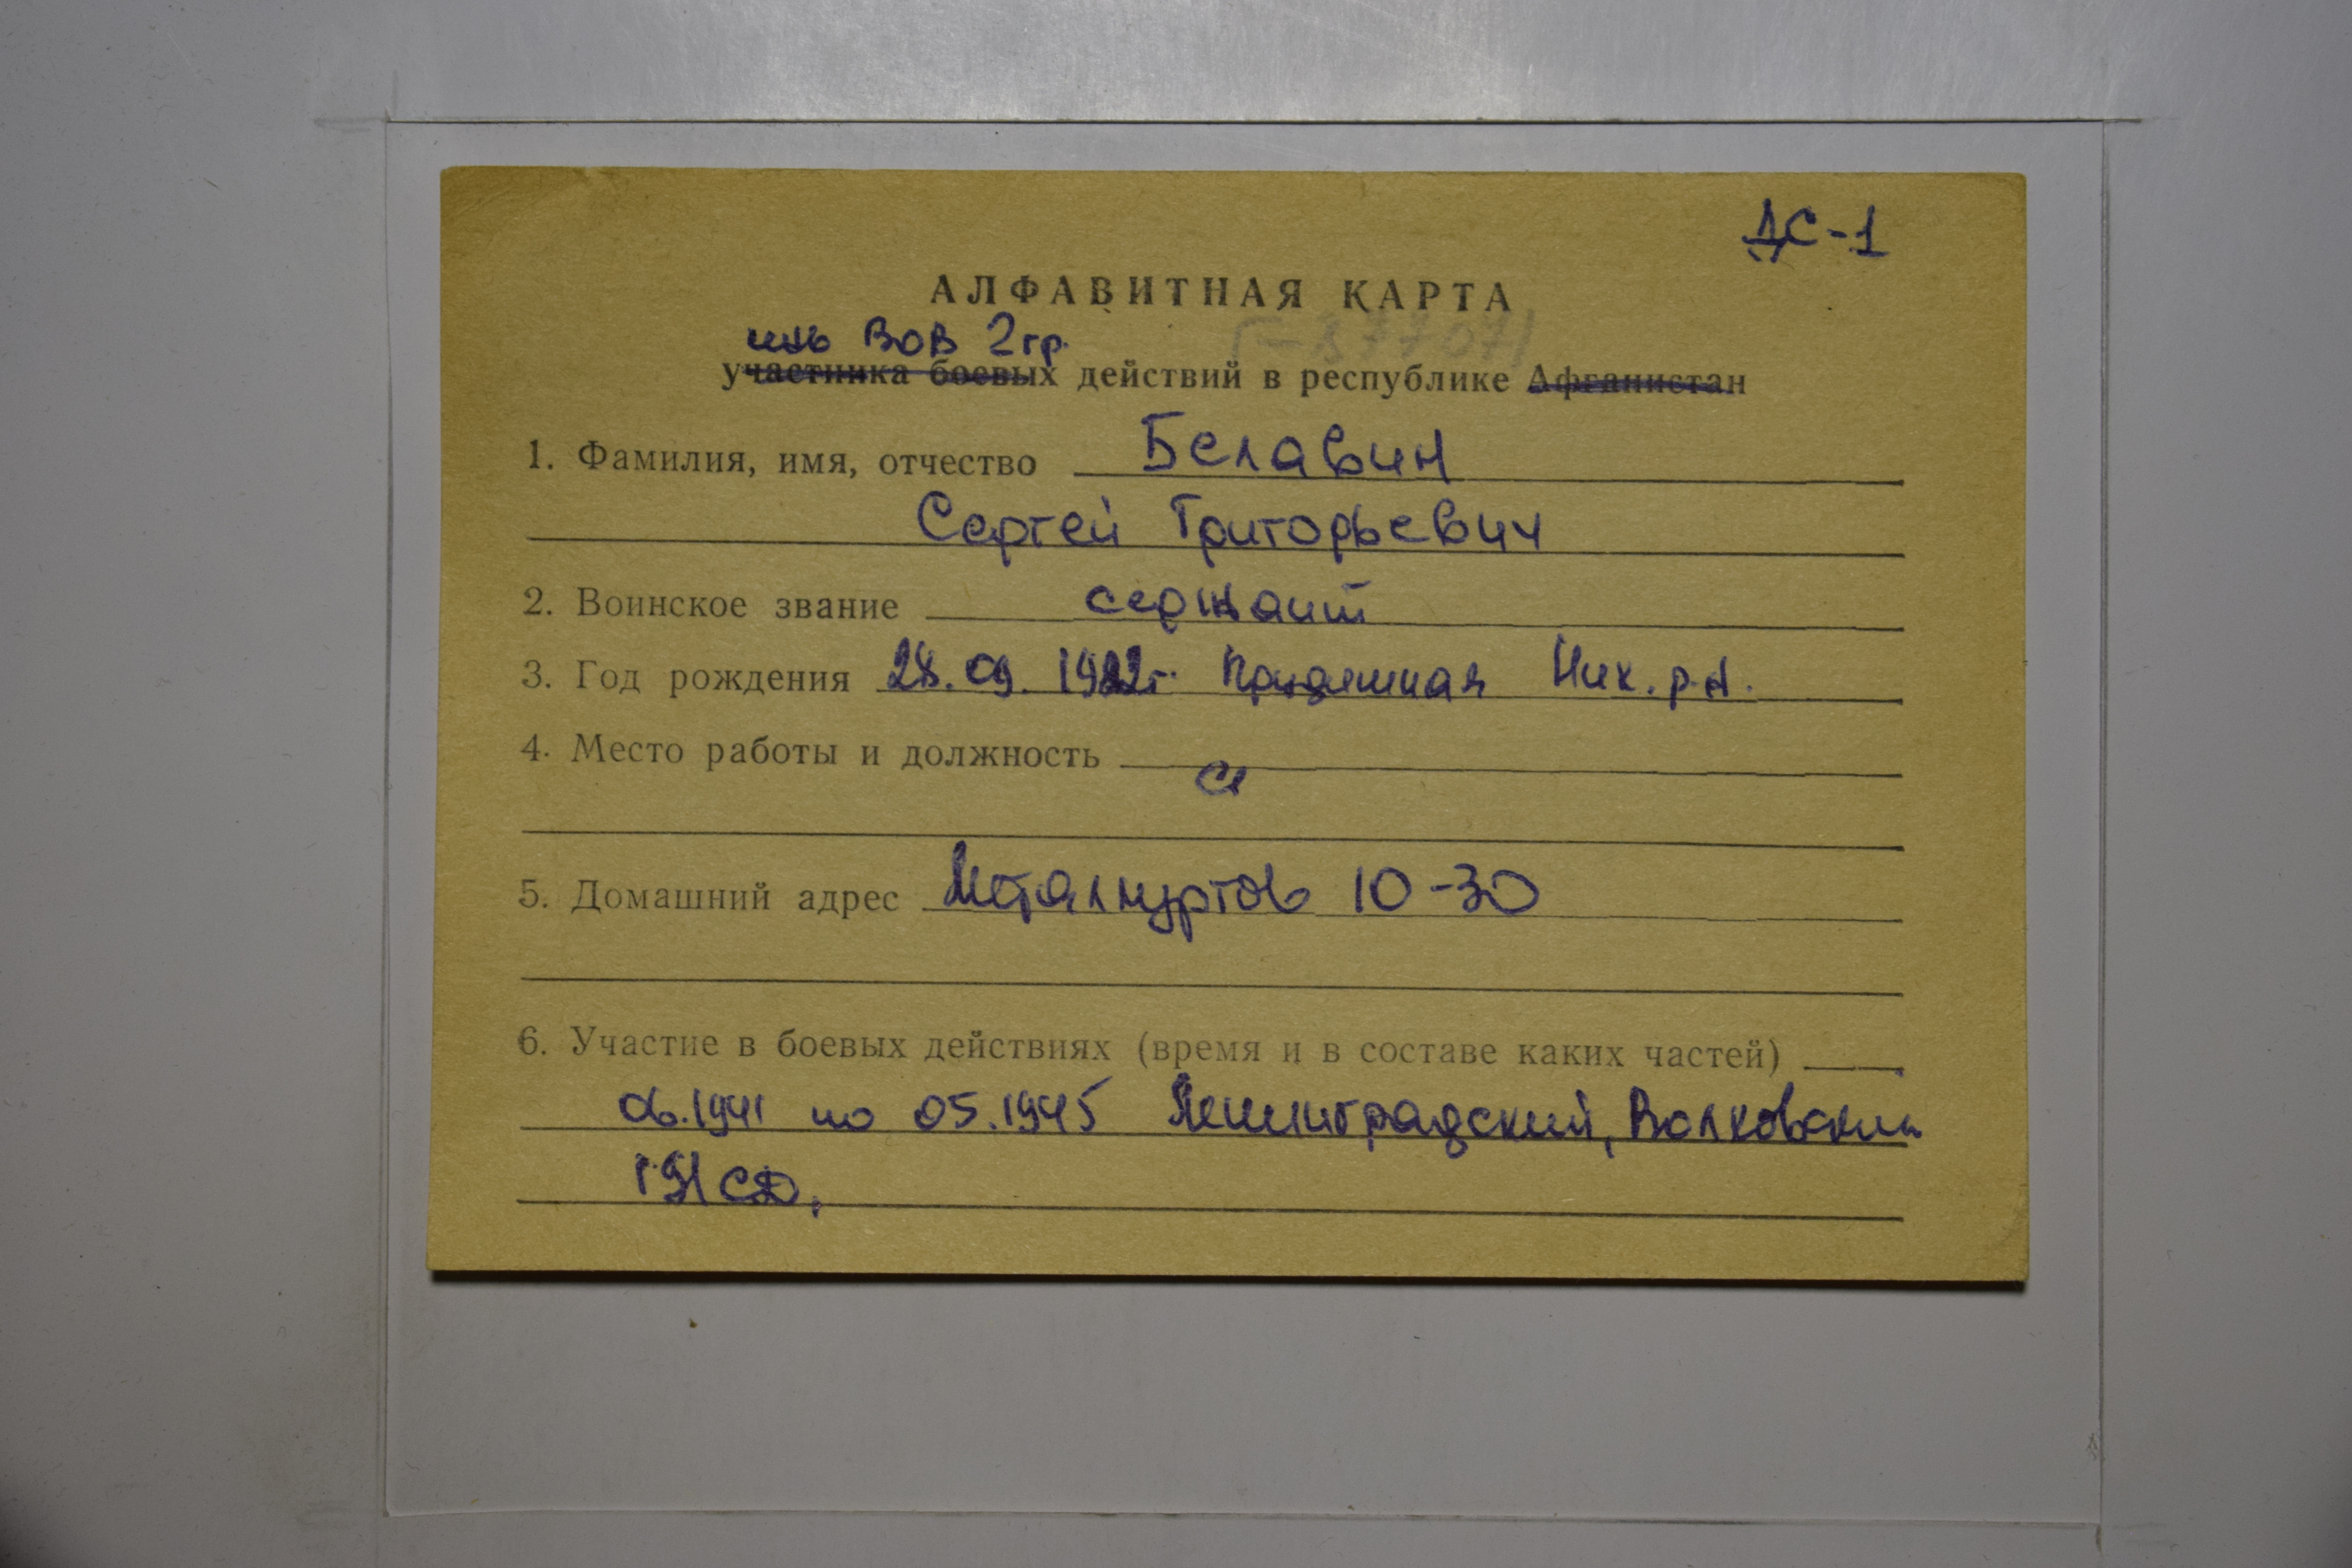 ДС-1
АЛФАВИТНАЯ КАРТА
инв ВОВ 2гр.
Г-377071
участника боевых действий в республике Афганистан
1. Фамилия, имя, отчество Белавин
Сергей Григорьевич
2. Воинское звание сержант
3. Год рождения 28.09. 1922г. Ник. р.н.
4. Место работы и должность
5. Домашний адрес Металлургов 10-30
6. Участие в боевых действиях (время и в составе каких частей)
06.1941 по 05.1945 Ленинградский, Волховский
191 СД.